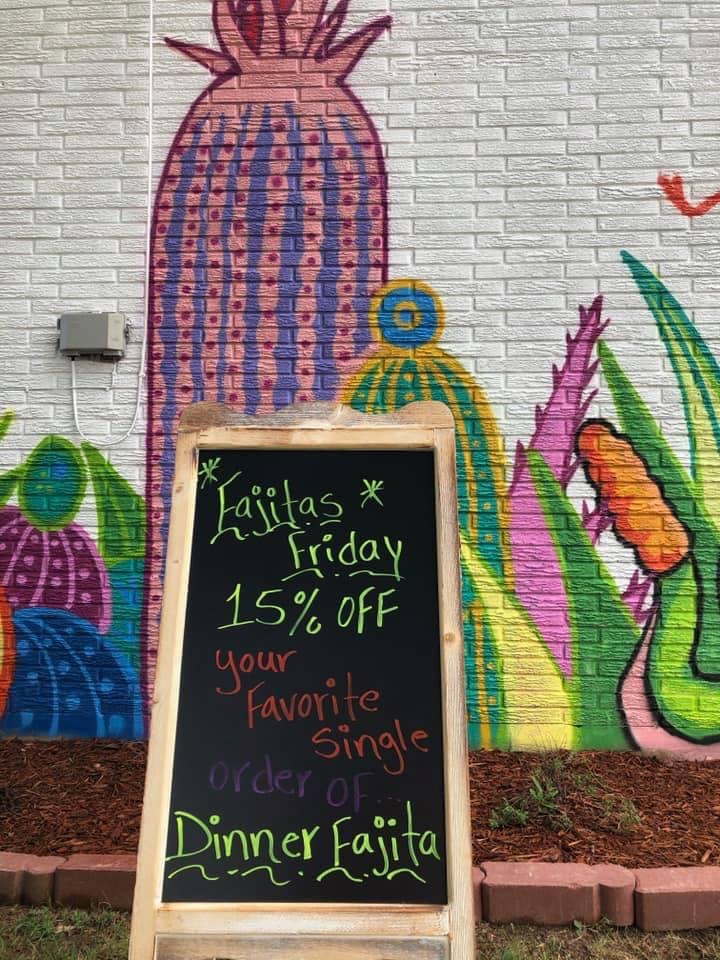 * Fajitas *
Friday
15% OFF
your
Favorite
Single
order of...
Dinner Fajita